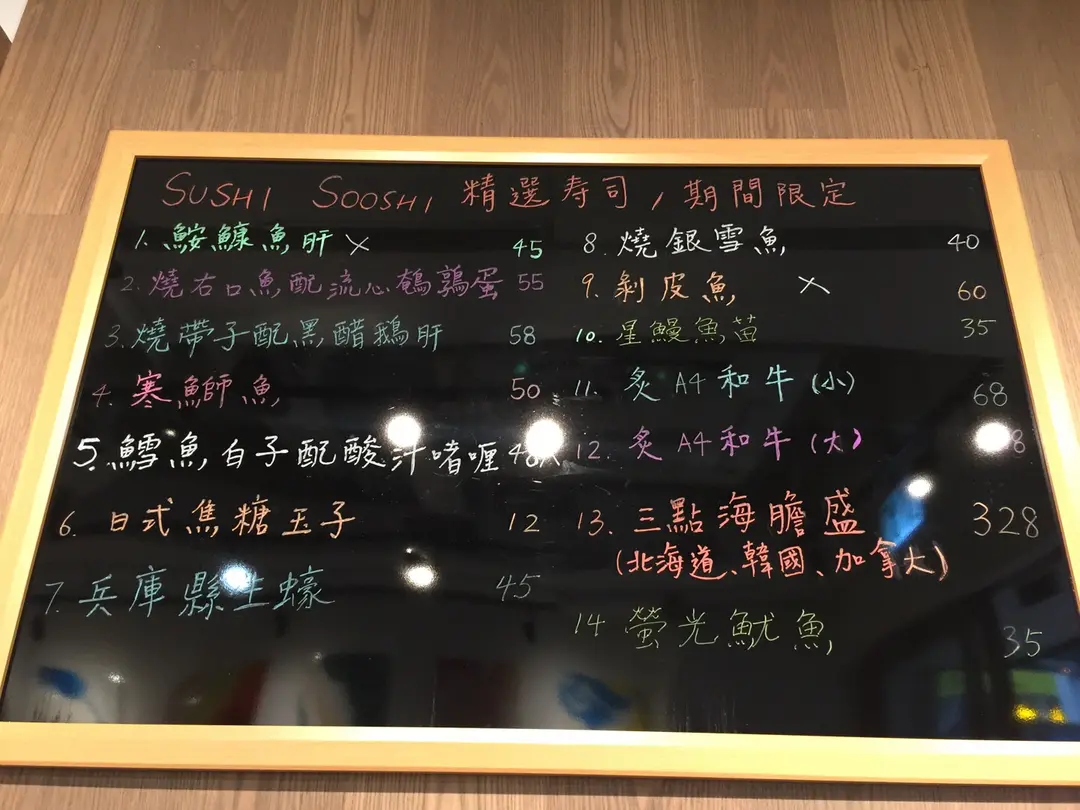 SUSHI SOOSHI 精選寿司，期間限定
1. 鮟鱇魚肝 × 45
2. 燒右口魚配流心鵪鶉蛋 55
3. 燒帶子配黑醋鵝肝 58
4. 寒鰤魚 50
5. 鱈魚白子配酸汁啫喱 48
6. 日式焦糖玉子 12
7. 兵庫縣生蠔 45
8. 燒銀雪魚 40
9. 剝皮魚 × 60
10. 星鰻魚苗 35
11. 炙A4和牛（小） 68
12. 炙A4和牛（大）
13. 三點海膽盛 328
（北海道、韓國、加拿大）
14 螢光魷魚 35